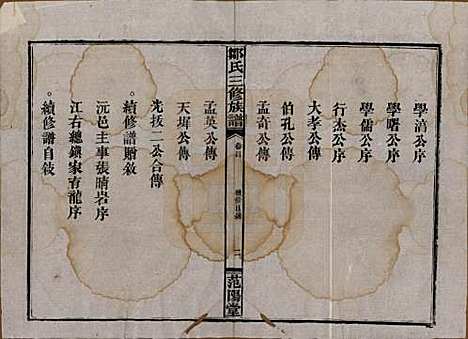 學濤公序
學曙公序
學儒公序
行杰公序
大孝公傳
伯孔公傳
孟奇公傳
鄒氏三修族譜
卷首
總修目錄
范陽堂
孟英公傳
天墀公傳
光拔二公合傳
續修譜贈敘
沅邑主事張晴岩序
江右總鎮家有龍序
續修譜自敘